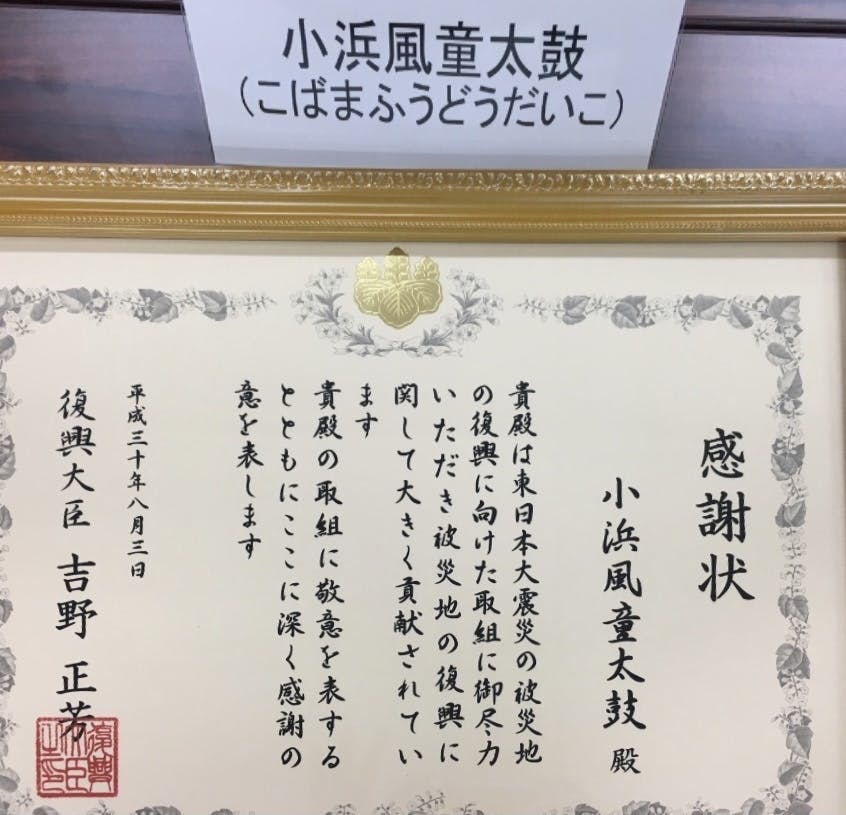 小浜風童太鼓
(こばまふうどうだいこ)
感謝状
小浜風童太鼓 殿
貴殿は東日本大震災の被災地
の復興に向けた取組に御尽力
いただき被災地の復興に
関して大きく貢献されてい
ます
貴殿の取組に敬意を表する
とともにここに深く感謝の
意を表します
平成三十年八月三日
復興大臣 吉野 正芳
復興
大臣
之印